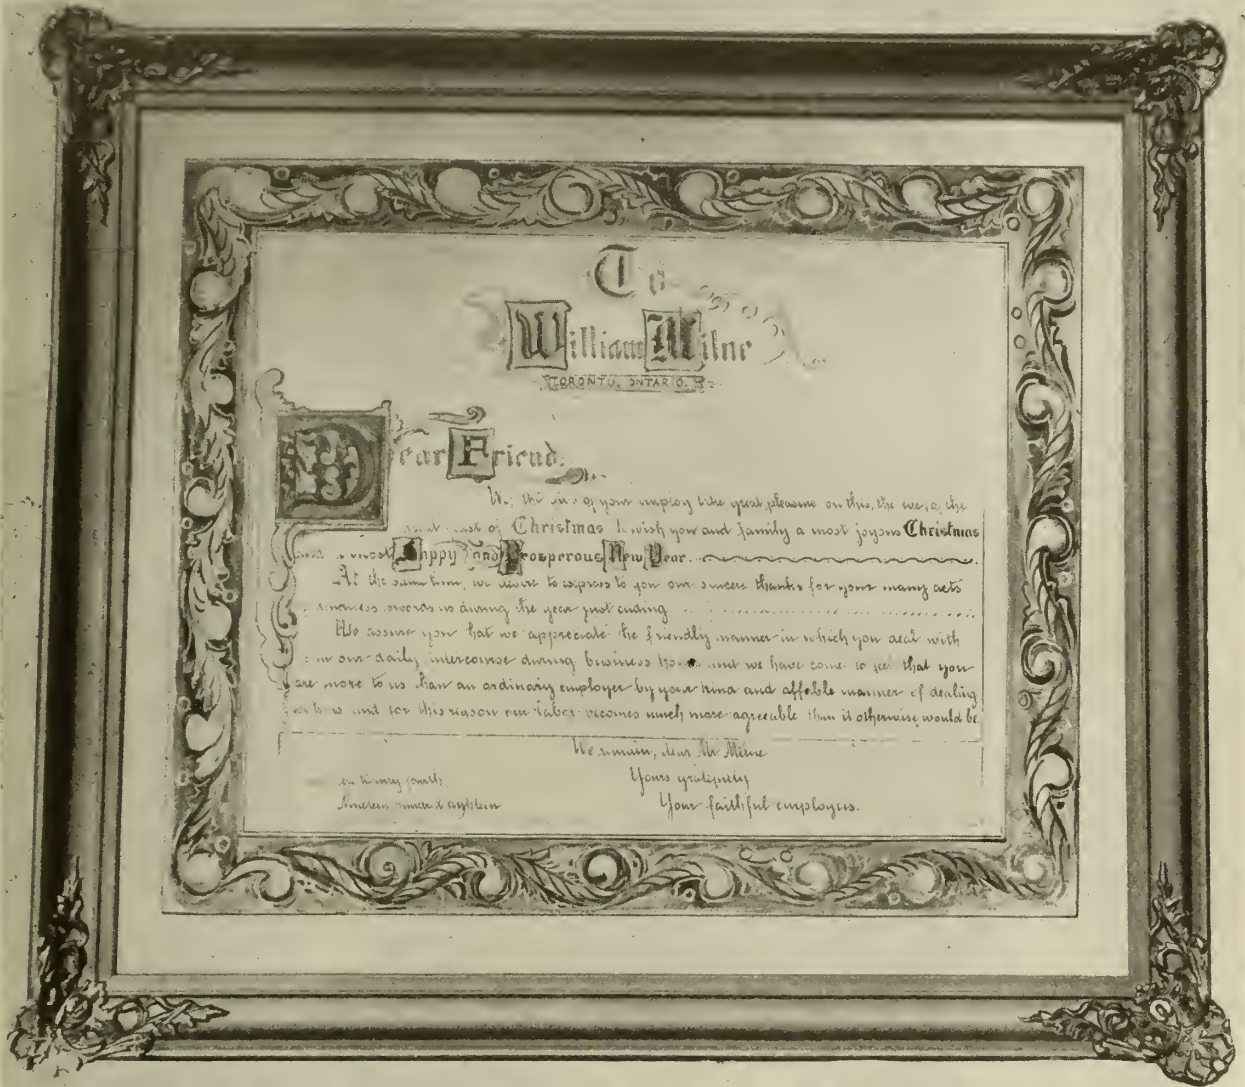 To
William Milne
TORONTO, ONTARIO.
Dear Friend,
We, the of your employ take great pleasure on this, the eve of the
of Christmas to wish you and family a most joyous Christmas
and a most Happy and Prosperous New Year.
At the same time, we desire to express to you our sincere thanks for your many acts
kindness towards us during the year just ending
We assure you that we appreciate the friendly manner in which you deal with
in our daily intercourse during business and we have come to feel that you
are more to us than an ordinary employer by your kind and affable manner of dealing
and for this reason our labor becomes much more agreeable than it otherwise would be
We remain, dear Mr Milne
Yours gratefully
Your faithful employees.
twenty fourth
Nineteen hundred eighteen